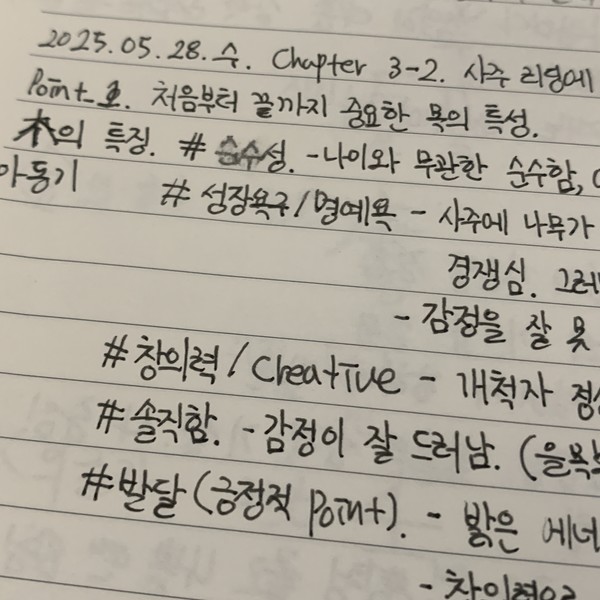 2025.05.28.수. Chapter 3-2. 사주 리딩에
Point_1. 처음부터 끝까지 중요한 목의 특성.
木의 특징. # 순수성. -나이와 무관한 순수함,
아동기 # 성장욕구/명예욕 - 사주에 나무가
경쟁심.
- 감정을 잘 못
#창의력/Creative - 개척자
#솔직함. -감정이 잘 드러남. (을목
#발달(긍정적 Point). - 밝은 에너
- 창의력으로